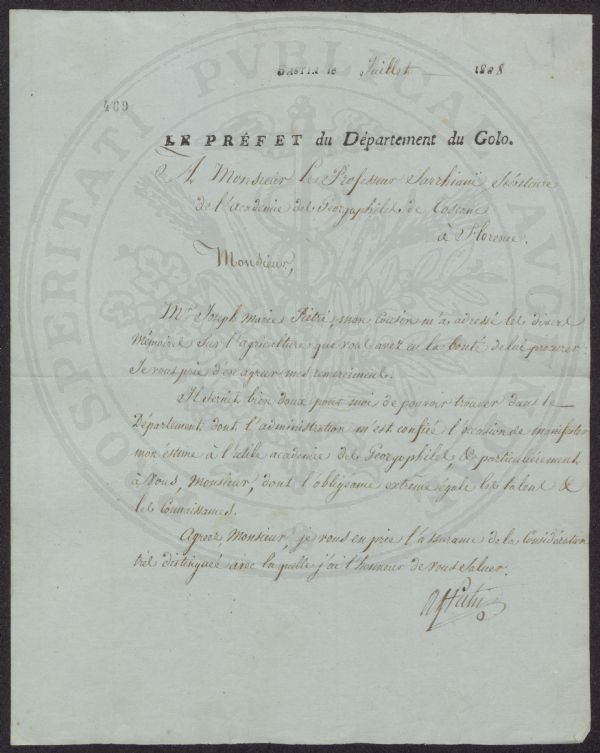 BASTIA le Juillet 1808
469
LE PRÉFET du Département du Golo.
A Monsieur le Professeur Sarchiani, Sécrétaire
de l'academie des Georgophiles de Toscane
à Florence.
Monsieur,
Mr Joseph Marie Pietri, mon cousin m'a adressé les divers
Mémoires sur l'agriculture que vous avez eu la bonté de lui procurer.
Je vous prie d'en agreer mes remerciments.
Il seroit bien doux pour moi de pouvoir trouver dans le
Département dont l'administration m'est confiée l'occasion de manifester
mon éstime à l'utile academie des Georgophiles, & particuliérement
à Vous, Monsieur, dont l'obligeance extreme égale les talens &
les Connaissances.
Agreez Monsieur, je vous en prie l'assurance de la Considération
très distinguée avec laquelle j'ai l'honneur de vous saluer.
Pietri
PROSPERITATI PVBLICAE AVGENDAE